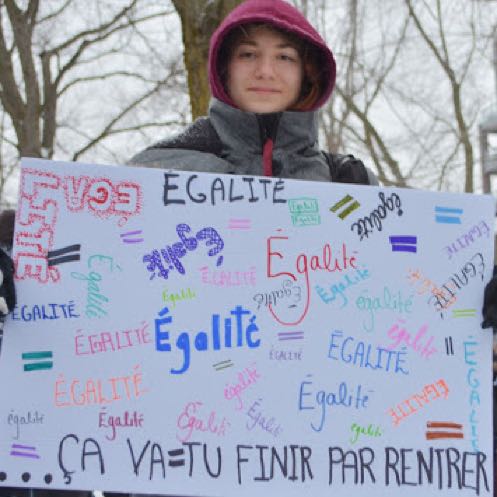 ÉGALITÉ
ÉGALITÉ
Égalité
Égalité
Égalité
Égalité
Égalité
ÉGALITÉ
ÉGALITÉ
ÉGALITÉ
Égalité
ÉGALITÉ
Égalité
Égalité
Égalité
Égalité
égalité
ÉGALITÉ
ÉGALITÉ
ÉGALITÉ
Égalité
ÉGALITÉ
égalité
ÉGALITÉ
ÉGALITÉ
égalité
Égalité
ÉGALITÉ
ÉGALITÉ
égalité
Égalité
Égalité
Égalité
égalité
...ÇA VA=TU FINIR PAR RENTRER